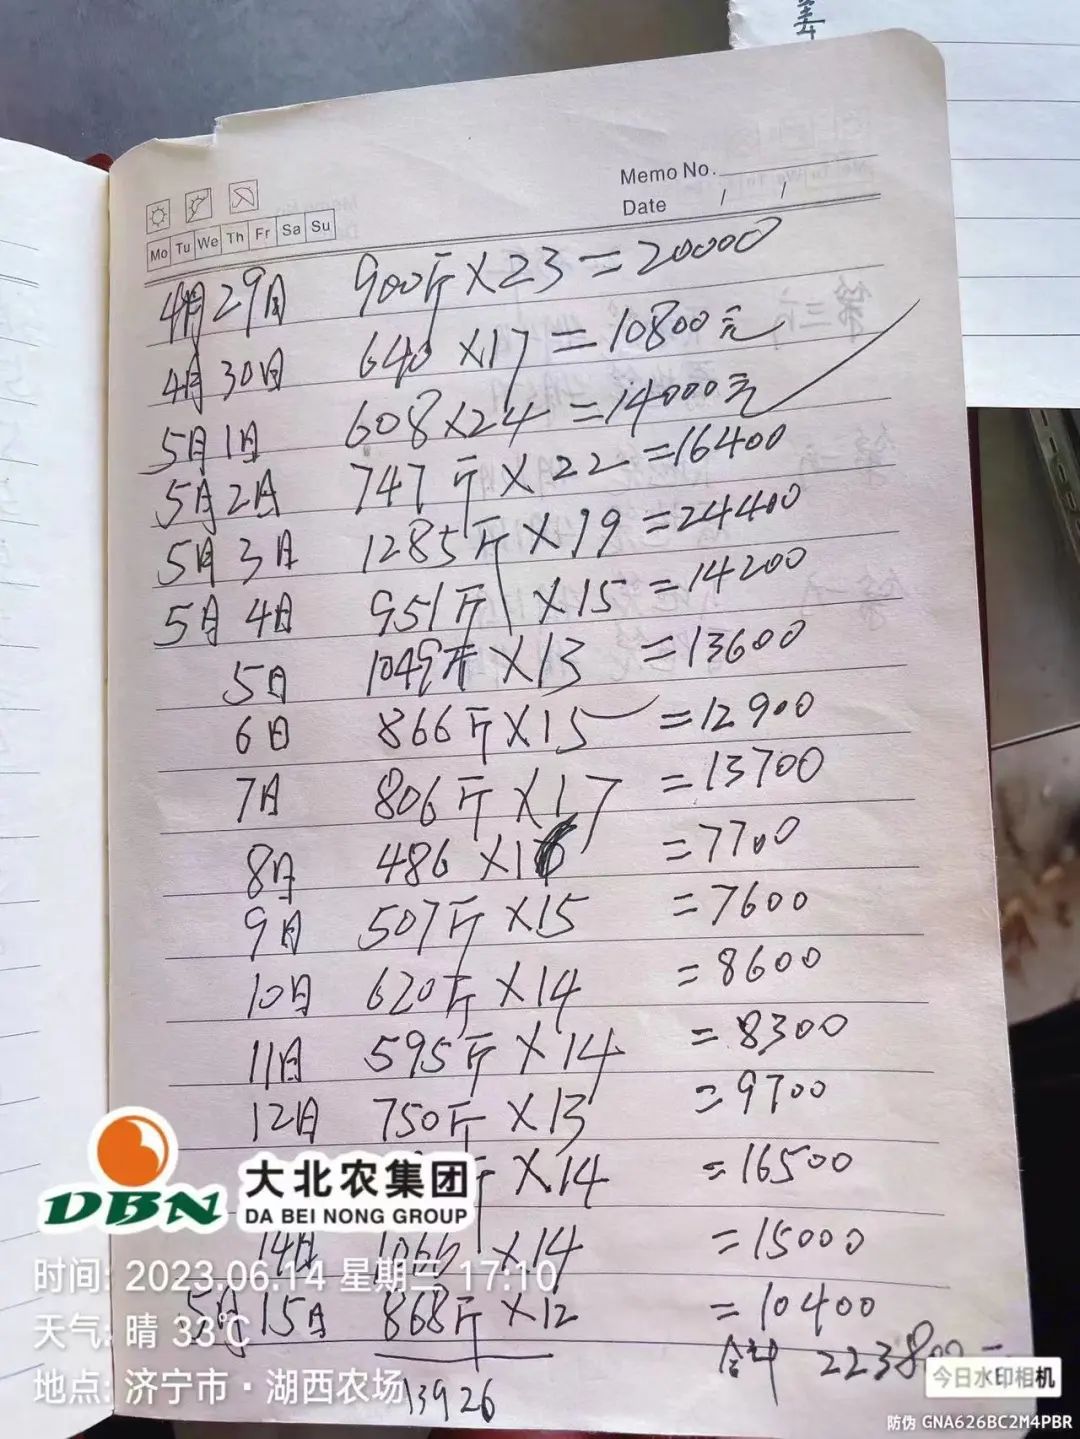 Memo No.
Date / /
Mo Tu We Th Fr Sa Su
4月29日 900斤×23=20000
4月30日 640×17=10800元
5月1日 608×24=14000元
5月2日 747斤×22=16400
5月3日 1285斤×19=24400
5月4日 951斤×15=14200
5日 1049斤×13=13600
6日 866斤×15=12900
7日 806斤×17=13700
8日 486×16=7700
9日 507斤×15=7600
10日 620斤×14=8600
11日 595斤×14=8300
12日 750斤×13=9700
斤×14=16500
14日 1066×14=15000
5月15日 868斤×12=10400
合计 223800
13926
DBN 大北农集团
DA BEI NONG GROUP
时间: 2023.06.14 星期三 17:10
天气: 晴 33℃
地点: 济宁市·湖西农场
今日水印相机
防伪 GNA626BC2M4PBR